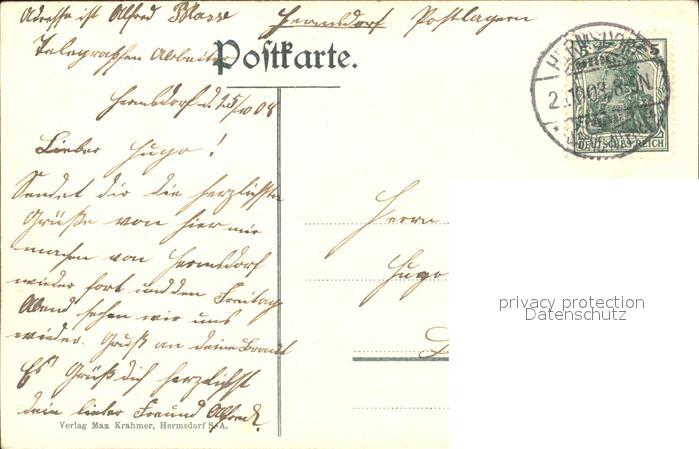 Adresse ist Alfred Blasse Hermsdorf Postlagern
Telegraphen Arbeiter
Postkarte.
Hermsdorf d. 25/10 08
Lieber Hugo!
Sendet dir die herzlichsten
Grüße von hier wir
machen von Hermsdorf
wieder fort und den Freitag
Abend sehen wir uns
wieder. Gruß an deine Braut
Es Grüßt dich herzlichst
dein lieber Freund Alfred.
Verlag Max Krahmer, Hermsdorf S.-A.
HERMSDORF
08. 8-9N.
5
DEUTSCHES REICH
Herrn
Hugo
privacy protection
Datenschutz